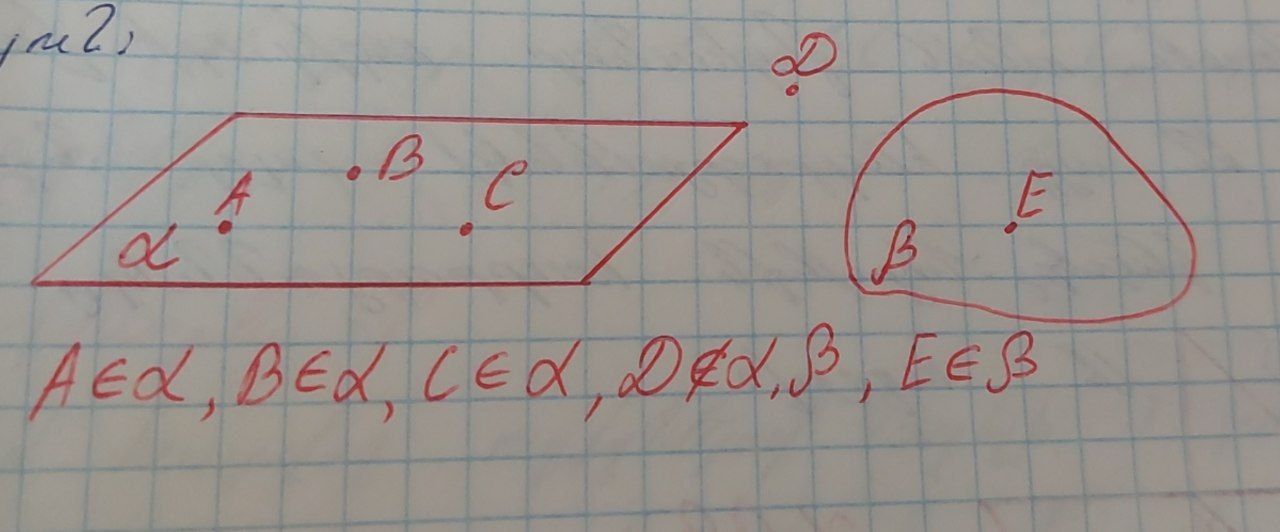 D
B
A
C
E
α
β
A∈α, B∈α, C∈α, D∉α,β, E∈β